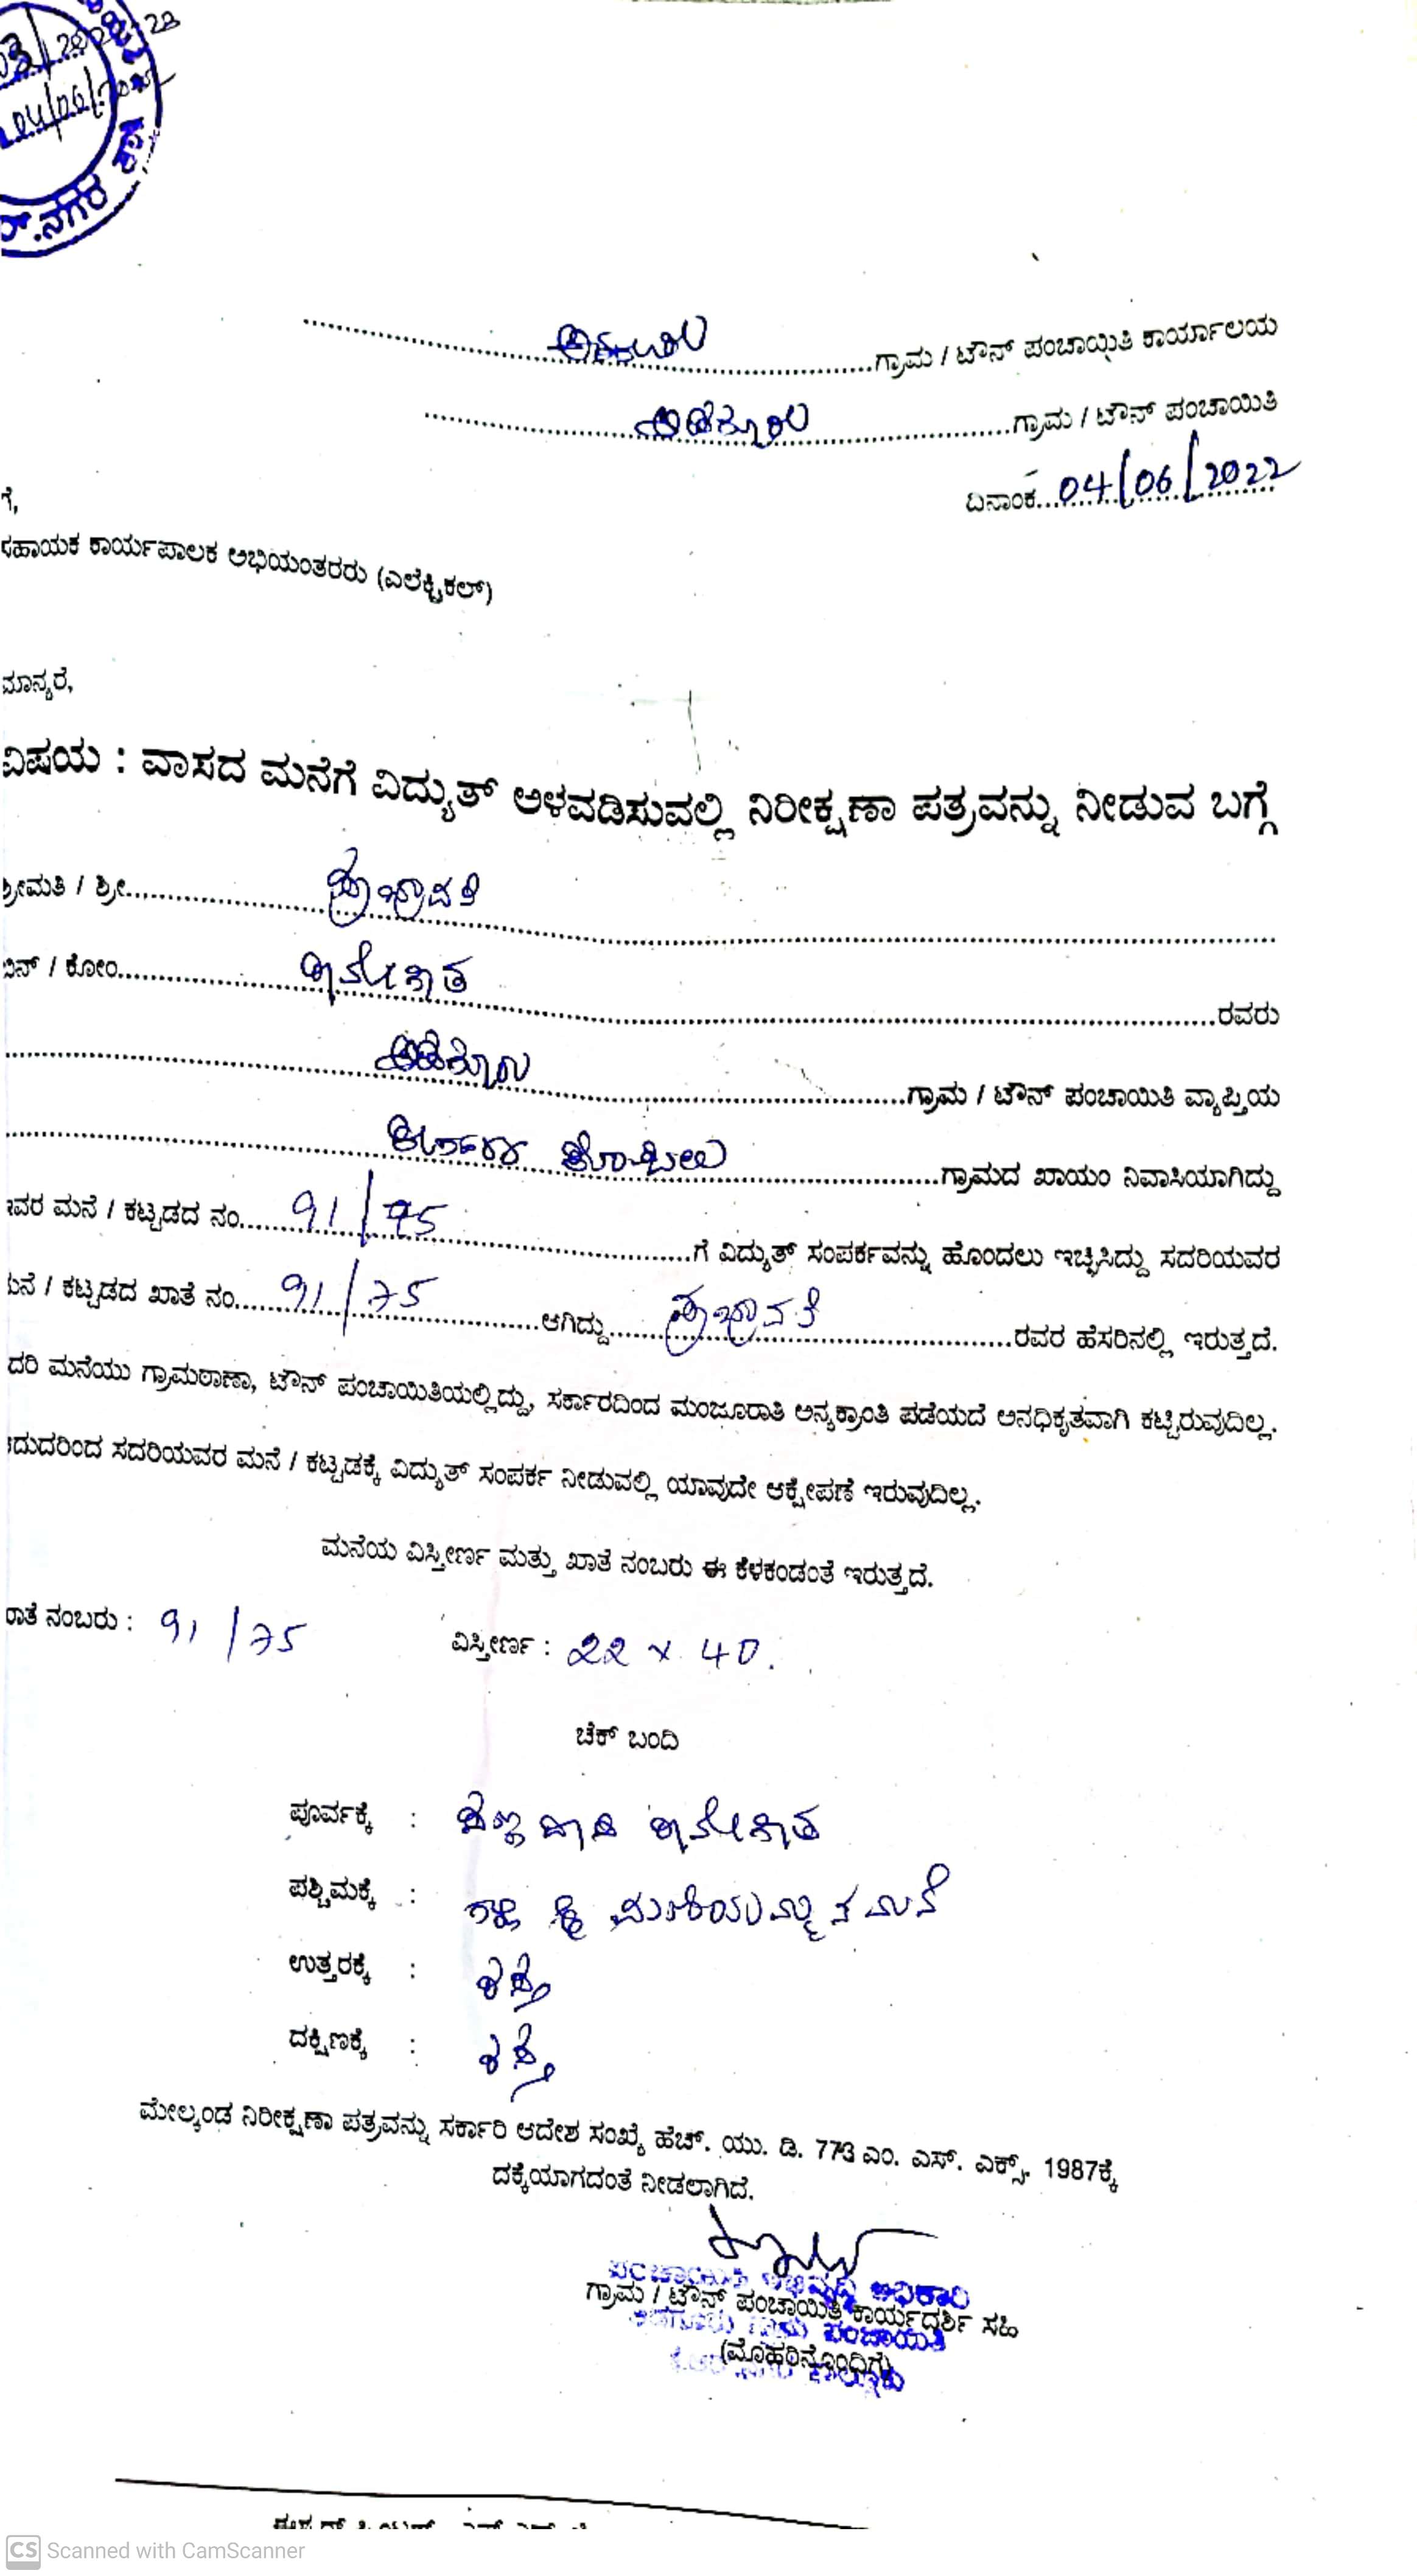 04/06/2022
ನಗರ
ಗ್ರಾಮ / ಟೌನ್ ಪಂಚಾಯಿತಿ ಕಾರ್ಯಾಲಯ
ಗ್ರಾಮ / ಟೌನ್ ಪಂಚಾಯಿತಿ
ದಿನಾಂಕ 04/06/2022
ಗೆ,
ಸಹಾಯಕ ಕಾರ್ಯಪಾಲಕ ಅಭಿಯಂತರರು (ಎಲೆಕ್ಟ್ರಿಕಲ್)
ಮಾನ್ಯರೆ,
ವಿಷಯ : ವಾಸದ ಮನೆಗೆ ವಿದ್ಯುತ್ ಅಳವಡಿಸುವಲ್ಲಿ ನಿರೀಕ್ಷಣಾ ಪತ್ರವನ್ನು ನೀಡುವ ಬಗ್ಗೆ
ಶ್ರೀಮತಿ / ಶ್ರೀ ಪ್ರಭಾವತಿ
ಬಿನ್ / ಕೋಂ ರವರು
ಗ್ರಾಮ / ಟೌನ್ ಪಂಚಾಯಿತಿ ವ್ಯಾಪ್ತಿಯ
ಕೊಪ್ಪಲು ಗ್ರಾಮದ ಖಾಯಂ ನಿವಾಸಿಯಾಗಿದ್ದು
ಇವರ ಮನೆ / ಕಟ್ಟಡದ ನಂ 91/75 ಗೆ ವಿದ್ಯುತ್ ಸಂಪರ್ಕವನ್ನು ಹೊಂದಲು ಇಚ್ಛಿಸಿದ್ದು ಸದರಿಯವರ
ಮನೆ / ಕಟ್ಟಡದ ಖಾತೆ ನಂ 91/75 ಆಗಿದ್ದು ಪ್ರಭಾವತಿ ರವರ ಹೆಸರಿನಲ್ಲಿ ಇರುತ್ತದೆ.
ದರಿ ಮನೆಯು ಗ್ರಾಮಠಾಣಾ, ಟೌನ್ ಪಂಚಾಯಿತಿಯಲ್ಲಿದ್ದು, ಸರ್ಕಾರದಿಂದ ಮಂಜೂರಾತಿ ಅನ್ಯಕ್ರಾಂತಿ ಪಡೆಯದೆ ಅನಧಿಕೃತವಾಗಿ ಕಟ್ಟಿರುವುದಿಲ್ಲ.
ಇದುದರಿಂದ ಸದರಿಯವರ ಮನೆ / ಕಟ್ಟಡಕ್ಕೆ ವಿದ್ಯುತ್ ಸಂಪರ್ಕ ನೀಡುವಲ್ಲಿ ಯಾವುದೇ ಆಕ್ಷೇಪಣೆ ಇರುವುದಿಲ್ಲ.
ಮನೆಯ ವಿಸ್ತೀರ್ಣ ಮತ್ತು ಖಾತೆ ನಂಬರು ಈ ಕೆಳಕಂಡಂತೆ ಇರುತ್ತದೆ.
ಖಾತೆ ನಂಬರು : 91/75 ವಿಸ್ತೀರ್ಣ : 22 x 40.
ಚೆಕ್ ಬಂದಿ
ಪೂರ್ವಕ್ಕೆ :
ಪಶ್ಚಿಮಕ್ಕೆ :
ಉತ್ತರಕ್ಕೆ : ರಸ್ತೆ
ದಕ್ಷಿಣಕ್ಕೆ : ರಸ್ತೆ
ಮೇಲ್ಕಂಡ ನಿರೀಕ್ಷಣಾ ಪತ್ರವನ್ನು ಸರ್ಕಾರಿ ಆದೇಶ ಸಂಖ್ಯೆ ಹೆಚ್. ಯು. ಡಿ. 773 ಎಂ. ಎಸ್. ಎಕ್ಸ್. 1987ಕ್ಕೆ
ದಕ್ಕೆಯಾಗದಂತೆ ನೀಡಲಾಗಿದೆ.
ಪಂಚಾಯಿತಿ ಅಭಿವೃದ್ಧಿ ಅಧಿಕಾರಿ
ಗ್ರಾಮ / ಟೌನ್ ಪಂಚಾಯಿತಿ ಕಾರ್ಯದರ್ಶಿ ಸಹಿ
ಗ್ರಾಮ ಪಂಚಾಯಿತಿ
(ಮೊಹರಿನೊಂದಿಗೆ)
ತಾಲ್ಲೂಕು
CS Scanned with CamScanner